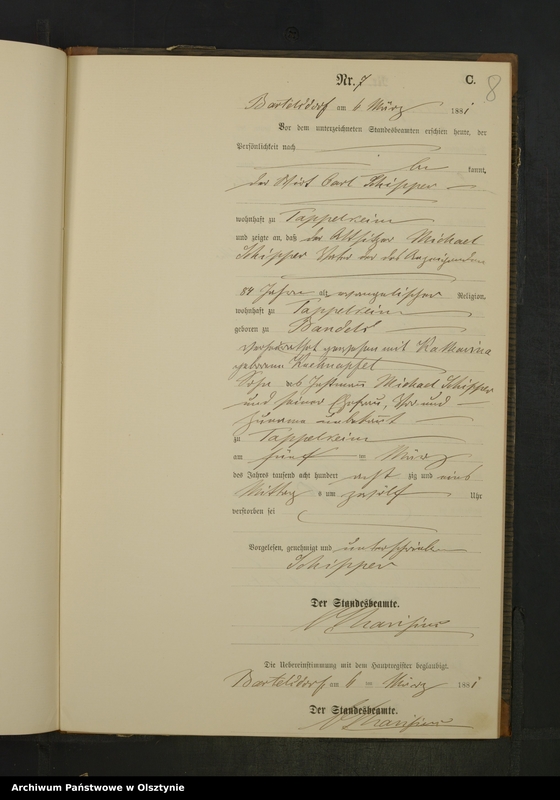 Nr. 7 C. 8
Bartelsdorf am 6 März 1881
Vor dem unterzeichneten Standesbeamten erschien heute, der
Persönlichkeit nach
be kannt,
der Wirt Carl Schipper
wohnhaft zu Tappelkeim
und zeigte an, daß der Altsitzer Michael
Schipper Vater des Anzeigenden
84 Jahre alt, evangelischer Religion,
wohnhaft zu Tappelkeim
geboren zu Bandels
verheirathet gewesen mit Katharina
geborene
Sohn des Instmann Michael Schipper
und seiner Ehefrau, Vor und
Zuname unbekannt
zu Tappelkeim
am fünf ten März
des Jahres tausend acht hundert acht zig und eins
Mittag s um zwölf Uhr
verstorben sei
Vorgelesen, genehmigt und unterschrieben
Schipper
Der Standesbeamte.
Die Uebereinstimmung mit dem Hauptregister beglaubigt.
Bartelsdorf am 6 ten März 1881
Der Standesbeamte.
Archiwum Państwowe w Olsztynie